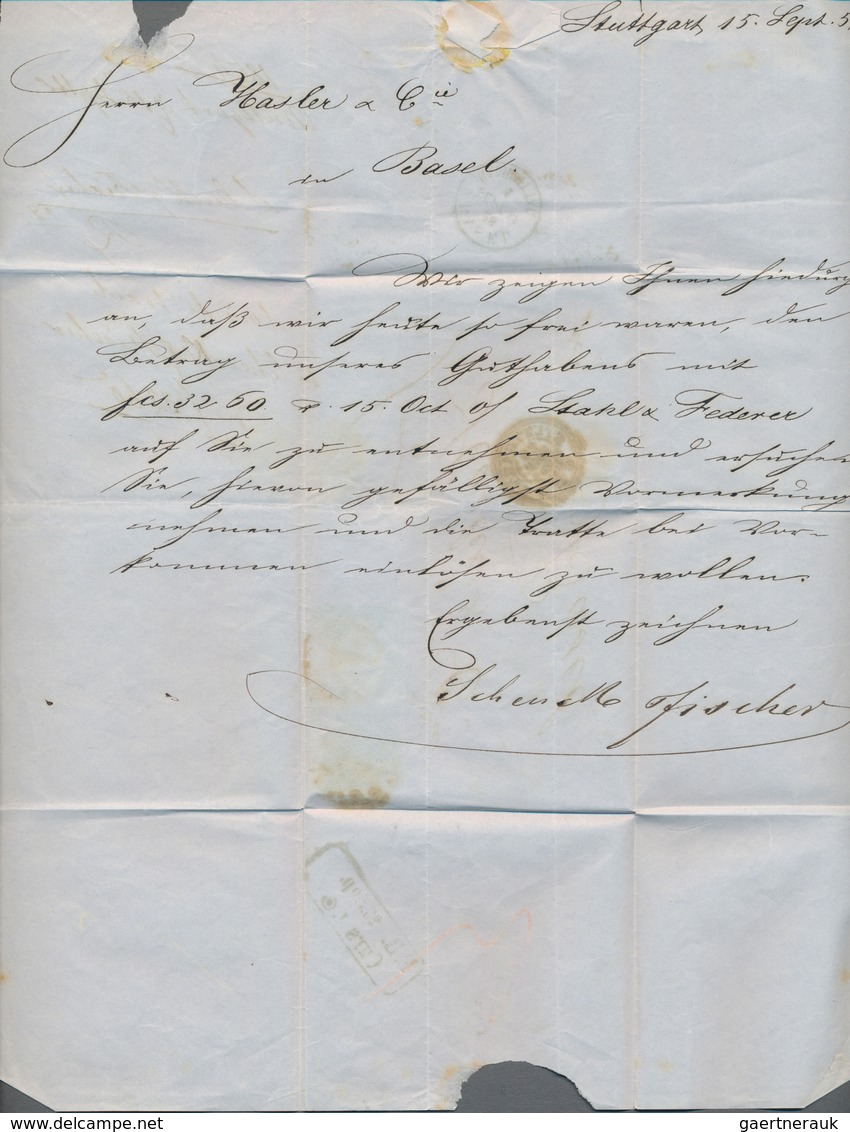 Stuttgart 15. Sept. 5
Herrn Hasler & Cie
in Basel.
Wir zeigen Ihnen hiedurch
an, daß wir heute so frei waren, den
Betrag unseres Guthabens mit
fcs. 32 60 p. 15. Oct o/ Stahl & Federer
auf Sie zu entnehmen und ersuchen
Sie, hievon gefälligst Vormerkung
nehmen und die Tratte bei Vor-
kommen einlösen zu wollen.
Ergebenst zeichnen
Schenck Fischer
gaertnerauk